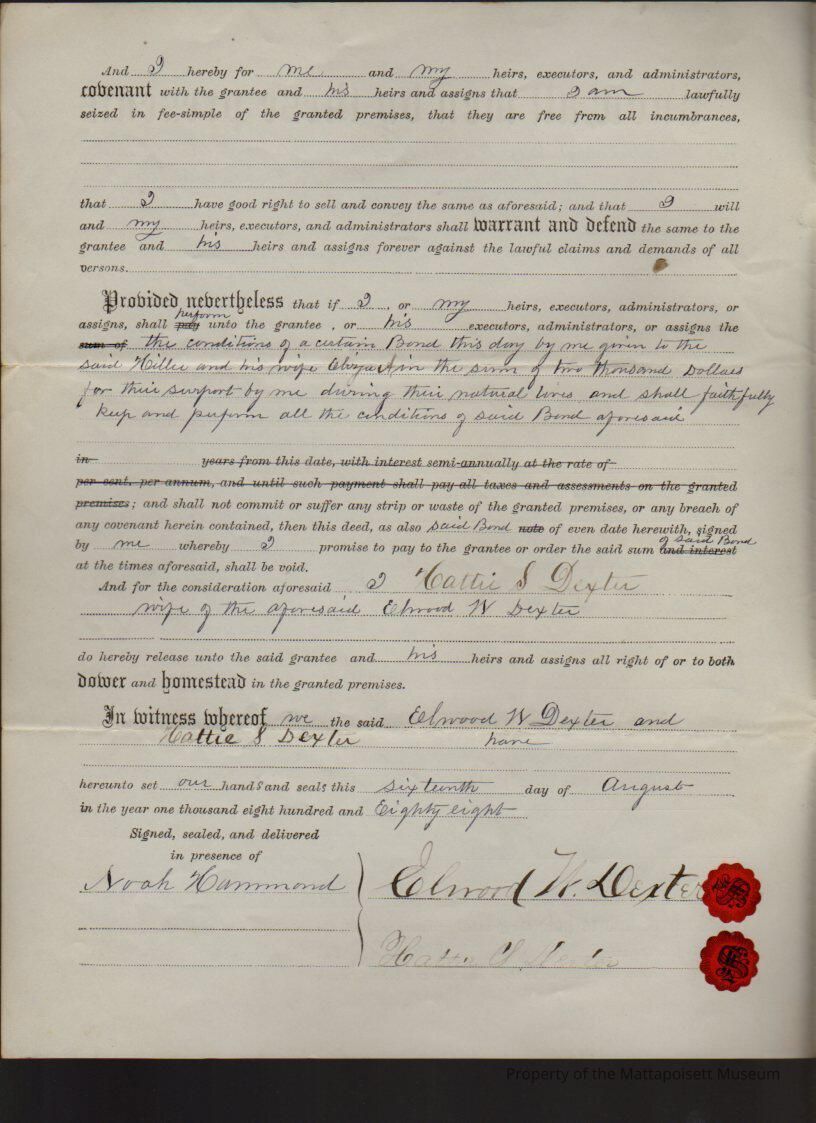 And I hereby for me and my heirs, executors, and administrators,
covenant with the grantee and his heirs and assigns that I am lawfully
seized in fee-simple of the granted premises, that they are free from all incumbrances,
that I have good right to sell and convey the same as aforesaid; and that I will
and my heirs, executors, and administrators shall warrant and defend the same to the
grantee and his heirs and assigns forever against the lawful claims and demands of all
persons.
Provided nevertheless that if I or my heirs, executors, administrators, or
perform
assigns, shall pay unto the grantee, or his executors, administrators, or assigns the
sum of the conditions of a certain Bond this day by me given to the
said Hillie and his wife in the sum of two thousand Dollars
for their surport by me during their natural lives and shall faithfully
keep and perform all the conditions of said Bond aforesaid
in years from this date, with interest semi-annually at the rate of
per cent. per annum, and until such payment shall pay all taxes and assessments on the granted
premises; and shall not commit or suffer any strip or waste of the granted premises, or any breach of
any covenant herein contained, then this deed, as also said Bond note of even date herewith, signed
of said Bond
by me whereby I promise to pay to the grantee or order the said sum and interest
at the times aforesaid, shall be void.
And for the consideration aforesaid I Hattie S Dexter
wife of the aforesaid Elwood W Dexter
do hereby release unto the said grantee and his heirs and assigns all right of or to both
dower and homestead in the granted premises.
In witness whereof we the said Elwood W Dexter and
Hattie S Dexter have
hereunto set our hands and seals this sixteenth day of August
in the year one thousand eight hundred and Eighty eight
Signed, sealed, and delivered
in presence of
Noah Hammond
Elwood W. Dexter
Hattie S. Dexter
Property of the Mattapoisett Museum